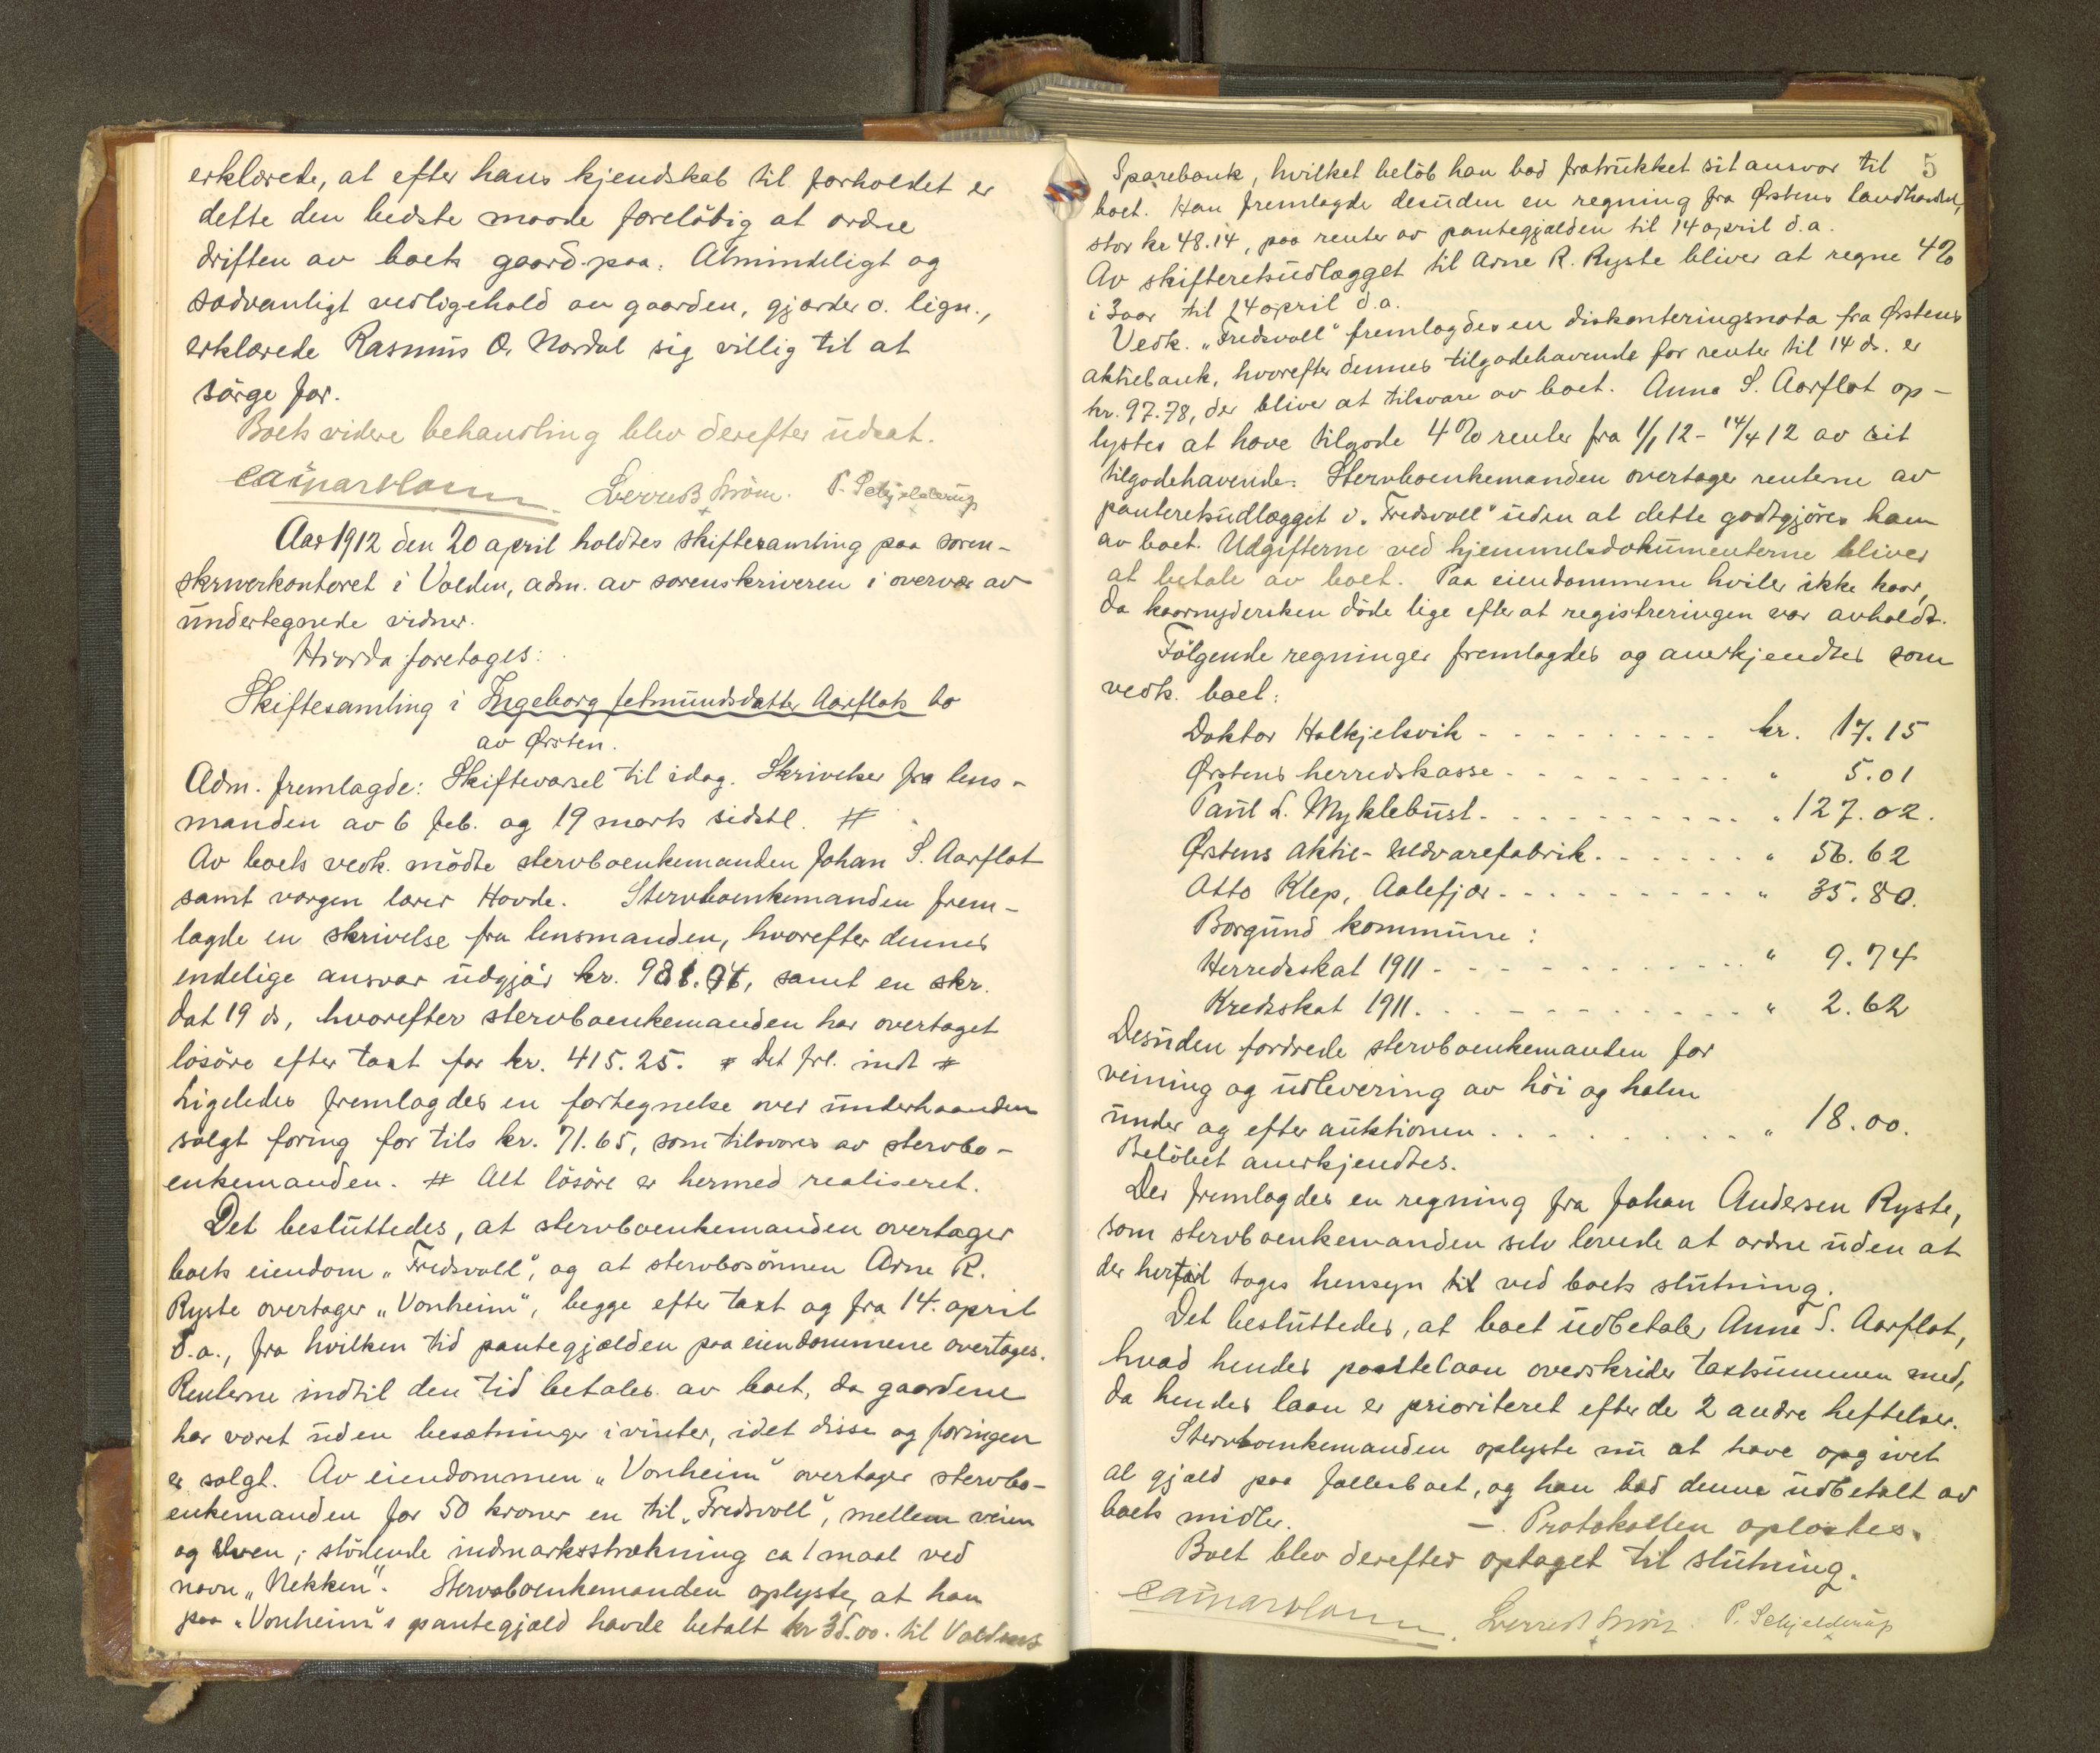 erklærede, at efter hans kjendskab til forholdet er
dette den bedste maade foreløbig at ordne
driften av boets gaard paa. Almindeligt og
sædvanligt vedligehold av gaarden, gjærder o. lign.,
erklærede Rasmus O. Nordal sig villig til at
sörge for.
Boets videre behandling blev derefter udsat.
P. Schjelderup
Aar 1912 den 20 april holdtes skiftesamling paa soren-
skriverkontoret i Volden, adm. av sorenskriveren i overvær av
undertegnede vidner.
Hvorda foretoges:
Skiftesamling i Ingeborg Jetmundsdatter Aarflots bo
av Ørsten.
Adm. fremlagde: Skiftevarsel til idag. Skrivelser fra lens-
manden av 6 feb. og 19 marts sidstl. #
Av boets vedk. mödte stervboenkemanden Johan S. Aarflot
samt vergen lærer Hovde. Stervboenkemanden frem-
lagde en skrivelse fra lensmanden, hvorefter dennes
endelige ansvar udgjør kr. , samt en skr.
dat 19 ds, hvorefter stervboenkemanden har overtaget
lösöre efter taxt for kr. 415.25. # Det frl. indt #
Ligeledes fremlagdes en fortegnelse over underhaanden
solgt foring for tils kr. 71.65, som tilsvares av stervbo-
enkemanden. # Alt lösöre er hermed realiseret.
Det besluttedes, at stervboenkemanden overtager
boets eiendom „Fredsvoll", og at stervbosönnen Arne R.
Ryste overtager „Vonheim", begge efter taxt og fra 14. april
d.a., fra hvilken tid pantegjælden paa eiendommene overtages.
Renterne indtil den tid betales av boet, da gaardene
har været uden besætninger i vinter, idet disse og foringen
er solgt. Av eiendommen „Vonheim" overtager stervbo-
enkemanden for 50 kroner en til „Fredsvoll", mellem veien
og elven, stödende indmarksstrækning ca 1 maal ved
navn „Nekken". Stervboenkemanden oplyste, at han
paa „Vonheim"s pantegjæld havde betalt kr 35.00. til Voldens
5
Sparebank, hvilket beløb han bad fratrukket sit ansvar til
boet. Han fremlagde desuden en regning fra Ørstens Landhandel,
stor kr 48.14, paa renter av pantegjælden til 14 april d.a.
Av skifteretsudlægget til Arne R. Ryste bliver at regne 4%
i 3 aar til 14 april d.a.
Vedk. „Fredsvoll" fremlagdes en diskonteringsnota fra Ørstens
aktiebank, hvorefter dennes tilgodehavende for renter til 14 ds. er
kr. 97.78, der bliver at tilsvare av boet. Anna S. Aarflot op-
lystes at have tilgode 4% renter fra 1/1 12 - 14/4 12 av sit
tilgodehavende. Stervboenkemanden overtager renterne av
panteretsudlægget i „Fredsvoll" uden at dette godtgjöres ham
av boet. Udgifterne ved hjemmelsdokumenterne bliver
at betale av boet. Paa eiendommene hviler ikke kaar,
da kaarnydersken döde lige efter at registreringen var avholdt.
Fölgende regninger fremlagdes og anerkjendtes som
vedk. boet:
Doktor Halkjelsvik - - - - - - - - - kr. 17.15
Ørstens herredskasse - - - - - - - - - " 5.01
Paul L. Myklebust - - - - - - - - - - " 127.02.
Ørstens Aktie- Uldvarefabrik - - - - - - " 56.62
Otto Klep, Aalefjær - - - - - - - - - " 35.80.
Borgund kommune:
Herredsskat 1911 - - - - - - - - - - " 9.74
Kredsskat 1911. - - - - - - - - - - " 2.62
Desuden fordrede stervboenkemanden for
veining og udlevering av höi og halm
under og efter auktionen . . . . . . . . . " 18.00.
Belöbet anerkjendtes.
Der fremlagdes en regning fra Johan Andersen Ryste,
som stervboenkemanden selv lovede at ordne uden at
der hertil tages hensyn til ved boets slutning.
Det besluttedes, at boet udbetaler Anna S. Aarflot,
hvad hendes pantelaan overskrider taxtsummen med,
da hendes laan er prioriteret efter de 2 andre heftelser.
Stervboenkemanden oplyste nu at have opgivet
al gjæld paa fællesboet, og han bad denne udbetalt av
boets midler. —. Protokollen oplæstes.
Boet blev derefter optaget til slutning.
P. Schjelderup